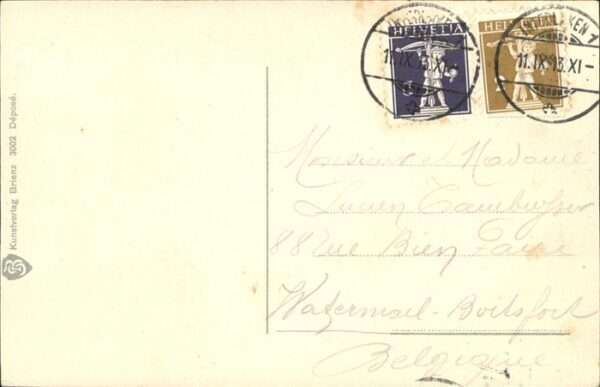 Kunstverlag Brienz 3002 Déposé.
HELVETIA
HELVETIA
11.IX.13.XI-
11.IX.13.XI-
Monsieur et Madame
Lucien
88 rue Bien Faire
Watermael-Boitsfort
Belgique